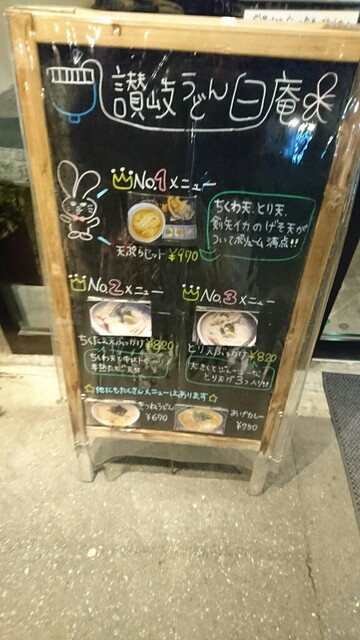 讃岐うどん 白庵
No.1メニュー
ちくわ天、とり天、
剣先イカのげそ天が
ついてボリューム満点!!
天ぷらセット ¥970
No.2メニュー
No.3メニュー
ぶっかけ ¥820
とり天ぶっかけ ¥820
ちくわ天も
半熟たまご天!!
大きくてジューシーな
とり天が3つ入り!!
☆他にもたくさんメニューはあります☆
きつねうどん
¥670
あげカレー
¥780